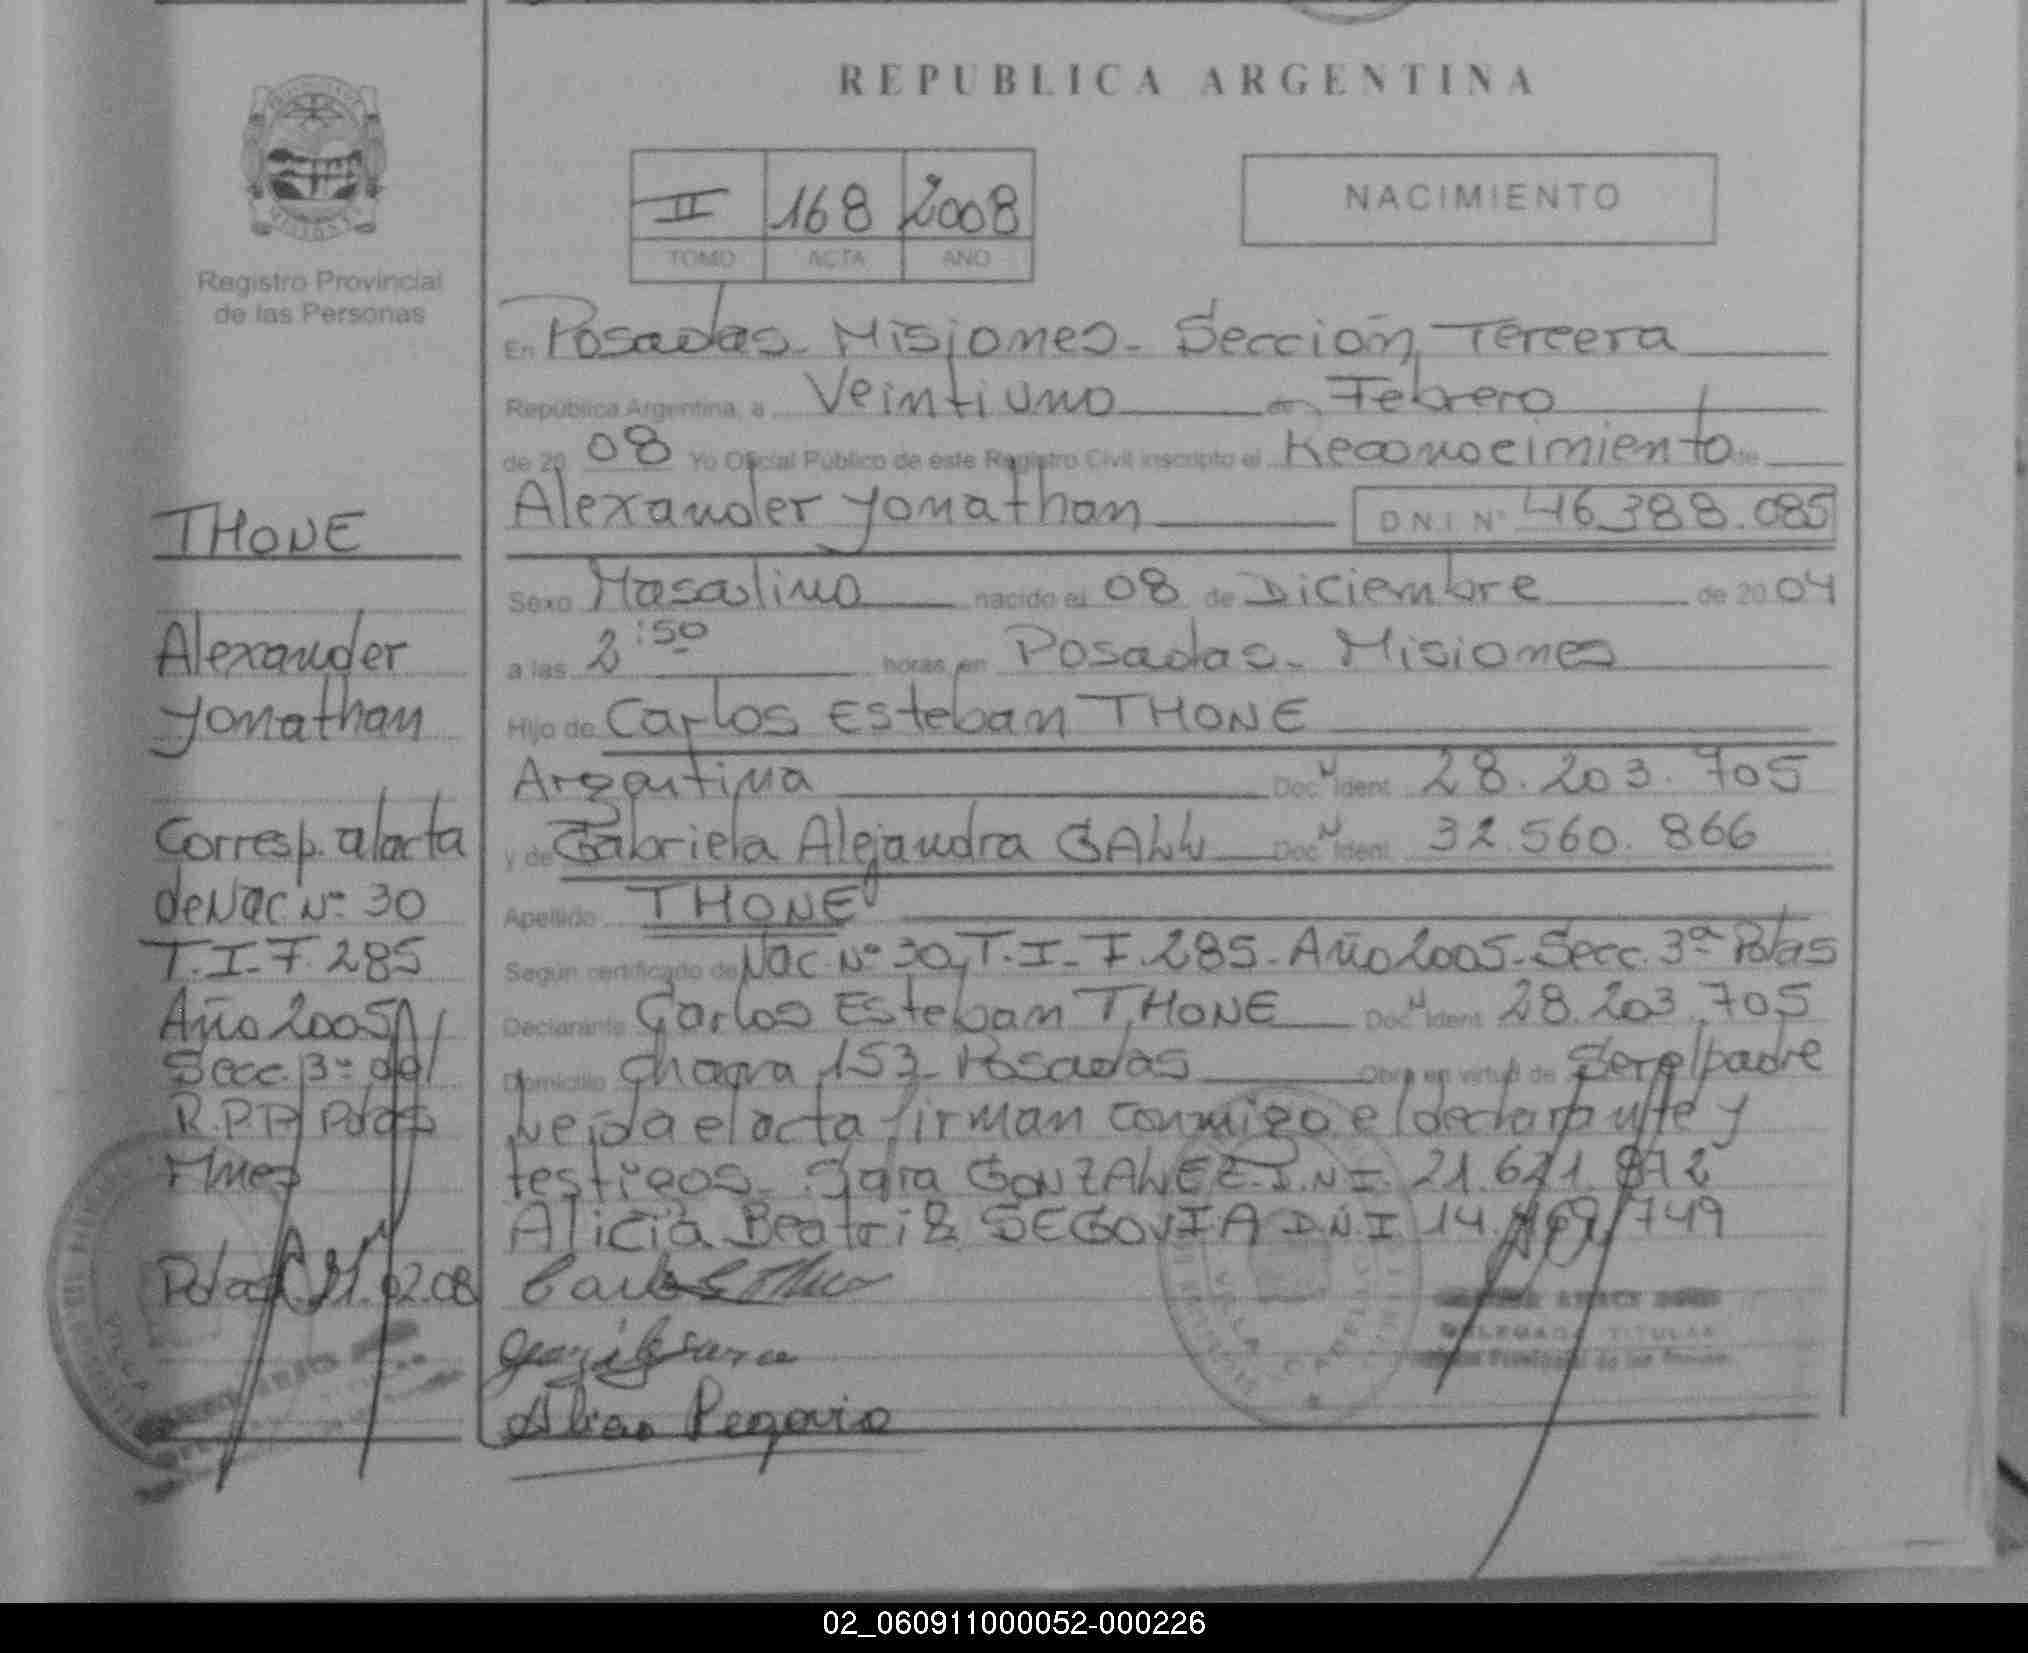 REPUBLICA ARGENTINA
II 168 2008
TOMO ACTA AÑO
NACIMIENTO
Registro Provincial
de las Personas
En Posadas - Misiones - Sección Tercera
República Argentina, a Veintiuno de Febrero
de 20 08 Yo Oficial Público de este Registro Civil inscripto el Reconocimiento de
Alexander Yonathan D N I Nº 46.388.085
Sexo Masculino nacido el 08 de Diciembre de 20 04
a las 2:50 horas, en Posadas - Misiones
Hijo de Carlos Esteban THONE
Argentina Doc. N Ident. 28.203.705
y de Gabriela Alejandra GALL Doc. N Ident. 32.560.866
Apellido THONE
Según certificado de Nac. Nº 30, T. I - F. 285 - Año 2005 - Secc. 3ª Pdas
Declarante Carlos Esteban THONE Doc. N Ident. 28.203.705
Domicilio Chacra 153 - Posadas Obra en virtud de Ser el padre
Leída el acta firman conmigo el declarante y
testigos - Sara GONZALEZ D.N.I. 21.621.872
Alicia Beatriz SEGOVIA D.N.I 14. 749
THONE
Alexander
Yonathan
Corresp. al acta
de Nac. Nº 30
T. I - F. 285
Año 2005
Secc. 3ª del
R.P.P. Pdas
Mnes
Pdas 21.02.08
DELEGADA TITULAR
VILLA
02_060911000052-000226